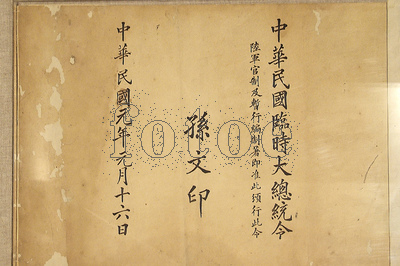 中華民國臨時大總統令
陸軍官制及暫行編制署即准此頒行此令
孫文印
中華民國元年元月十六日